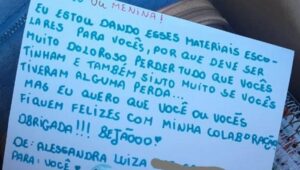 OU MENINA!
EU ESTOU DANDO ESSES MATERIAIS ESCO-
LARES PARA VOCÊS, POR QUE DEVE SER
MUITO DOLOROSO PERDER TUDO QUE VOCÊS
TINHAM E TAMBÉM SINTO MUITO SE VOCÊS
TIVERAM ALGUMA PERDA...
MAS EU QUERO QUE VOCÊ OU VOCÊS
FIQUEM FELIZES COM MINHA COLABORAÇÃO
OBRIGADA!!! BEJÃOOO!
DE: ALESSANDRA LUIZA
PARA: VOCÊ